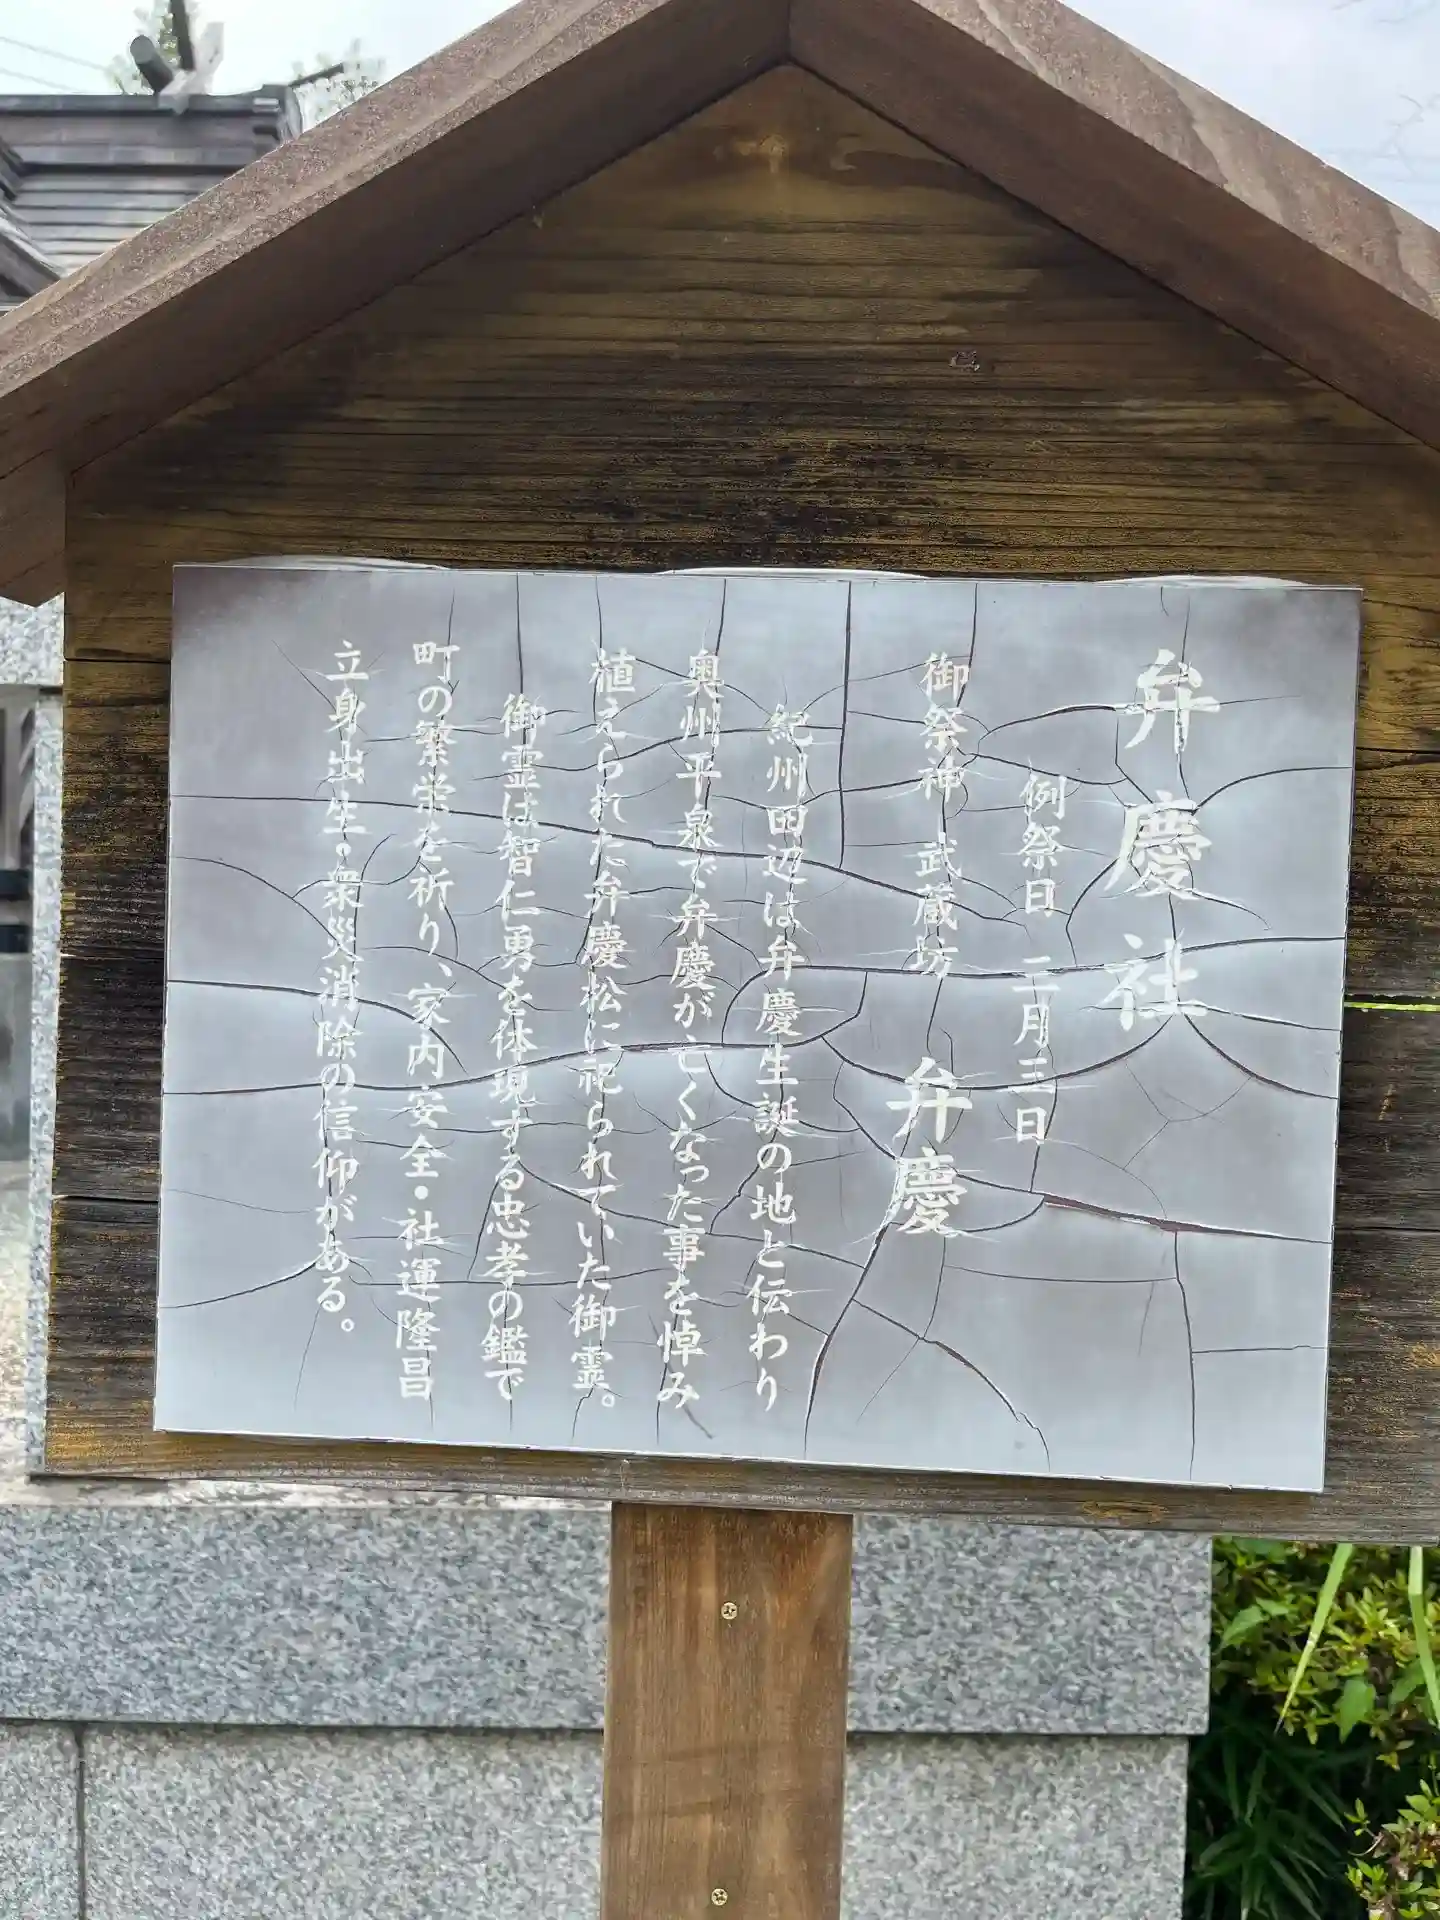 弁慶社
例祭日 二月三日
御祭神 武蔵坊 弁慶
紀州田辺は弁慶生誕の地と伝わり
奥州平泉で弁慶が亡くなった事を悼み
植えられた弁慶松に祀られていた御霊。
御霊は智仁勇を体現する忠孝の鑑で
町の繁栄を祈り、家内安全・社運隆昌
立身出生・衆災消除の信仰がある。